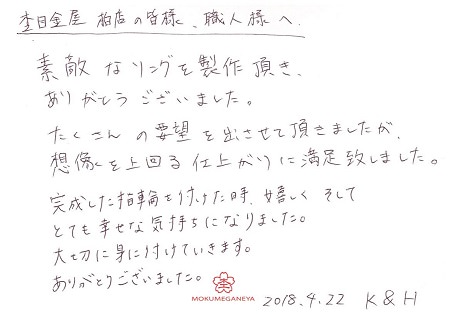 杢目金屋 柏店の皆様、職人様へ.
素敵なリングを製作頂き、
ありがとうございました。
たくさんの要望を出させて頂きましたが、
想像を上回る仕上がりに満足致しました。
完成した指輪を付けた時、嬉しく そして
とても幸せな気持ちになりました。
大切に身に付けていきます。
ありがとうございました。
MOKUMEGANEYA
2018.4.22 K & H